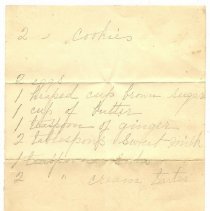 2 - Cookies
2 eggs
1 heaped cup brown sugar
1 cup of butter
1 teaspoon of ginger
2 tablespoons sweet milk
1 teaspoon soda
2 " cream tartar